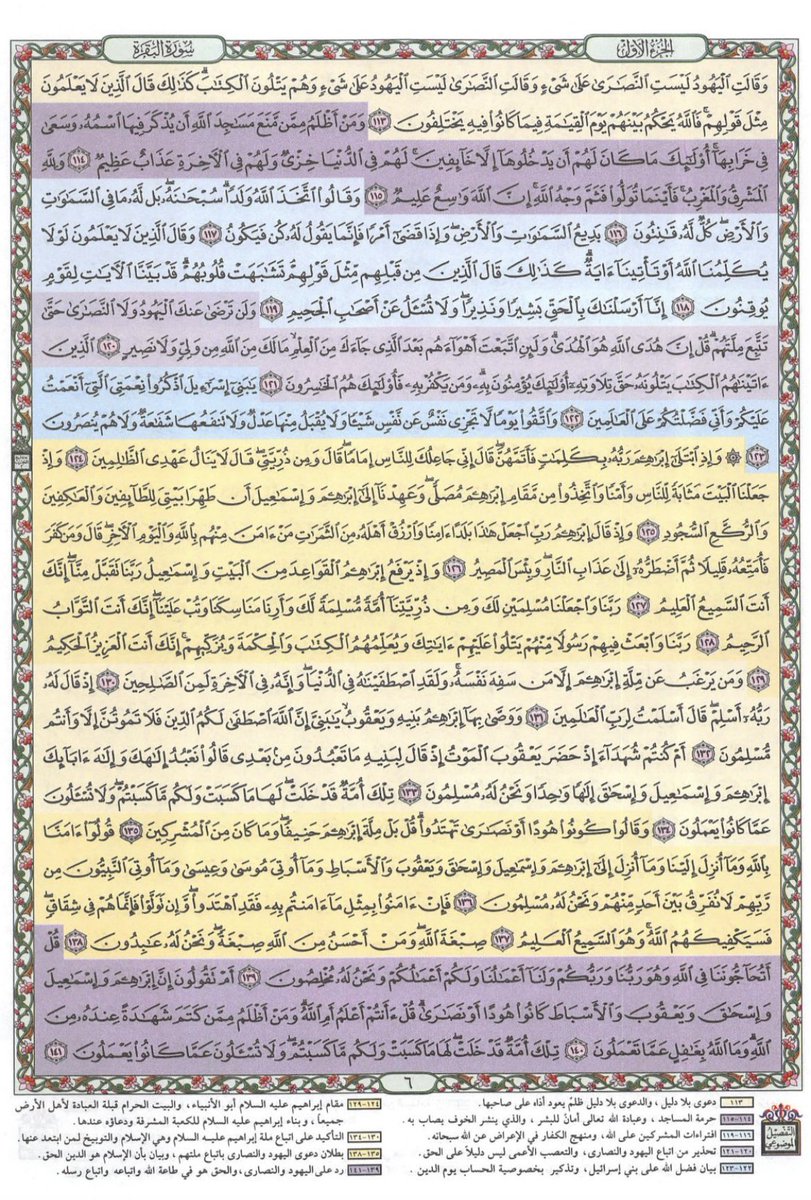 الجزء الأول
سورة البقرة
وَقَالَتِ ٱلْيَهُودُ لَيْسَتِ ٱلنَّصَٰرَىٰ عَلَىٰ شَىْءٍ وَقَالَتِ ٱلنَّصَٰرَىٰ لَيْسَتِ ٱلْيَهُودُ عَلَىٰ شَىْءٍ وَهُمْ يَتْلُونَ ٱلْكِتَٰبَ ۗ كَذَٰلِكَ قَالَ ٱلَّذِينَ لَا يَعْلَمُونَ
مِثْلَ قَوْلِهِمْ ۚ فَٱللَّهُ يَحْكُمُ بَيْنَهُمْ يَوْمَ ٱلْقِيَٰمَةِ فِيمَا كَانُوا۟ فِيهِ يَخْتَلِفُونَ ١١٣ وَمَنْ أَظْلَمُ مِمَّن مَّنَعَ مَسَٰجِدَ ٱللَّهِ أَن يُذْكَرَ فِيهَا ٱسْمُهُۥ وَسَعَىٰ
فِى خَرَابِهَآ ۚ أُو۟لَٰٓئِكَ مَا كَانَ لَهُمْ أَن يَدْخُلُوهَآ إِلَّا خَآئِفِينَ ۚ لَهُمْ فِى ٱلدُّنْيَا خِزْىٌ وَلَهُمْ فِى ٱلْءَاخِرَةِ عَذَابٌ عَظِيمٌ ١١٤ وَلِلَّهِ
ٱلْمَشْرِقُ وَٱلْمَغْرِبُ ۚ فَأَيْنَمَا تُوَلُّوا۟ فَثَمَّ وَجْهُ ٱللَّهِ ۚ إِنَّ ٱللَّهَ وَٰسِعٌ عَلِيمٌ ١١٥ وَقَالُوا۟ ٱتَّخَذَ ٱللَّهُ وَلَدًا ۗ سُبْحَٰنَهُۥ ۖ بَل لَّهُۥ مَا فِى ٱلسَّمَٰوَٰتِ
وَٱلْأَرْضِ ۖ كُلٌّ لَّهُۥ قَٰنِتُونَ ١١٦ بَدِيعُ ٱلسَّمَٰوَٰتِ وَٱلْأَرْضِ ۖ وَإِذَا قَضَىٰٓ أَمْرًا فَإِنَّمَا يَقُولُ لَهُۥ كُن فَيَكُونُ ١١٧ وَقَالَ ٱلَّذِينَ لَا يَعْلَمُونَ لَوْلَا
يُكَلِّمُنَا ٱللَّهُ أَوْ تَأْتِينَآ ءَايَةٌ ۗ كَذَٰلِكَ قَالَ ٱلَّذِينَ مِن قَبْلِهِم مِّثْلَ قَوْلِهِمْ ۘ تَشَٰبَهَتْ قُلُوبُهُمْ ۗ قَدْ بَيَّنَّا ٱلْءَايَٰتِ لِقَوْمٍ
يُوقِنُونَ ١١٨ إِنَّآ أَرْسَلْنَٰكَ بِٱلْحَقِّ بَشِيرًا وَنَذِيرًا ۖ وَلَا تُسْـَٔلُ عَنْ أَصْحَٰبِ ٱلْجَحِيمِ ١١٩ وَلَن تَرْضَىٰ عَنكَ ٱلْيَهُودُ وَلَا ٱلنَّصَٰرَىٰ حَتَّىٰ
تَتَّبِعَ مِلَّتَهُمْ ۗ قُلْ إِنَّ هُدَى ٱللَّهِ هُوَ ٱلْهُدَىٰ ۗ وَلَئِنِ ٱتَّبَعْتَ أَهْوَآءَهُم بَعْدَ ٱلَّذِى جَآءَكَ مِنَ ٱلْعِلْمِ ۙ مَا لَكَ مِنَ ٱللَّهِ مِن وَلِىٍّ وَلَا نَصِيرٍ ١٢٠ ٱلَّذِينَ
ءَاتَيْنَٰهُمُ ٱلْكِتَٰبَ يَتْلُونَهُۥ حَقَّ تِلَاوَتِهِۦٓ أُو۟لَٰٓئِكَ يُؤْمِنُونَ بِهِۦ ۗ وَمَن يَكْفُرْ بِهِۦ فَأُو۟لَٰٓئِكَ هُمُ ٱلْخَٰسِرُونَ ١٢١ يَٰبَنِىٓ إِسْرَٰٓءِيلَ ٱذْكُرُوا۟ نِعْمَتِىَ ٱلَّتِىٓ أَنْعَمْتُ
عَلَيْكُمْ وَأَنِّى فَضَّلْتُكُمْ عَلَى ٱلْعَٰلَمِينَ ١٢٢ وَٱتَّقُوا۟ يَوْمًا لَّا تَجْزِى نَفْسٌ عَن نَّفْسٍ شَيْـًٔا وَلَا يُقْبَلُ مِنْهَا عَدْلٌ وَلَا تَنفَعُهَا شَفَٰعَةٌ وَلَا هُمْ يُنصَرُونَ
١٢٣ ۞ وَإِذِ ٱبْتَلَىٰٓ إِبْرَٰهِۦمَ رَبُّهُۥ بِكَلِمَٰتٍ فَأَتَمَّهُنَّ ۖ قَالَ إِنِّى جَاعِلُكَ لِلنَّاسِ إِمَامًا ۖ قَالَ وَمِن ذُرِّيَّتِى ۖ قَالَ لَا يَنَالُ عَهْدِى ٱلظَّٰلِمِينَ ١٢٤ وَإِذْ
جَعَلْنَا ٱلْبَيْتَ مَثَابَةً لِّلنَّاسِ وَأَمْنًا وَٱتَّخِذُوا۟ مِن مَّقَامِ إِبْرَٰهِۦمَ مُصَلًّى ۖ وَعَهِدْنَآ إِلَىٰٓ إِبْرَٰهِۦمَ وَإِسْمَٰعِيلَ أَن طَهِّرَا بَيْتِىَ لِلطَّآئِفِينَ وَٱلْعَٰكِفِينَ
وَٱلرُّكَّعِ ٱلسُّجُودِ ١٢٥ وَإِذْ قَالَ إِبْرَٰهِۦمُ رَبِّ ٱجْعَلْ هَٰذَا بَلَدًا ءَامِنًا وَٱرْزُقْ أَهْلَهُۥ مِنَ ٱلثَّمَرَٰتِ مَنْ ءَامَنَ مِنْهُم بِٱللَّهِ وَٱلْيَوْمِ ٱلْءَاخِرِ ۖ قَالَ وَمَن كَفَرَ
فَأُمَتِّعُهُۥ قَلِيلًا ثُمَّ أَضْطَرُّهُۥٓ إِلَىٰ عَذَابِ ٱلنَّارِ ۖ وَبِئْسَ ٱلْمَصِيرُ ١٢٦ وَإِذْ يَرْفَعُ إِبْرَٰهِۦمُ ٱلْقَوَاعِدَ مِنَ ٱلْبَيْتِ وَإِسْمَٰعِيلُ رَبَّنَا تَقَبَّلْ مِنَّآ ۖ إِنَّكَ
أَنتَ ٱلسَّمِيعُ ٱلْعَلِيمُ ١٢٧ رَبَّنَا وَٱجْعَلْنَا مُسْلِمَيْنِ لَكَ وَمِن ذُرِّيَّتِنَآ أُمَّةً مُّسْلِمَةً لَّكَ وَأَرِنَا مَنَاسِكَنَا وَتُبْ عَلَيْنَآ ۖ إِنَّكَ أَنتَ ٱلتَّوَّابُ
ٱلرَّحِيمُ ١٢٨ رَبَّنَا وَٱبْعَثْ فِيهِمْ رَسُولًا مِّنْهُمْ يَتْلُوا۟ عَلَيْهِمْ ءَايَٰتِكَ وَيُعَلِّمُهُمُ ٱلْكِتَٰبَ وَٱلْحِكْمَةَ وَيُزَكِّيهِمْ ۚ إِنَّكَ أَنتَ ٱلْعَزِيزُ ٱلْحَكِيمُ
١٢٩ وَمَن يَرْغَبُ عَن مِّلَّةِ إِبْرَٰهِۦمَ إِلَّا مَن سَفِهَ نَفْسَهُۥ ۚ وَلَقَدِ ٱصْطَفَيْنَٰهُ فِى ٱلدُّنْيَا ۖ وَإِنَّهُۥ فِى ٱلْءَاخِرَةِ لَمِنَ ٱلصَّٰلِحِينَ ١٣٠ إِذْ قَالَ لَهُۥ
رَبُّهُۥٓ أَسْلِمْ ۖ قَالَ أَسْلَمْتُ لِرَبِّ ٱلْعَٰلَمِينَ ١٣١ وَوَصَّىٰ بِهَآ إِبْرَٰهِۦمُ بَنِيهِ وَيَعْقُوبُ يَٰبَنِىَّ إِنَّ ٱللَّهَ ٱصْطَفَىٰ لَكُمُ ٱلدِّينَ فَلَا تَمُوتُنَّ إِلَّا وَأَنتُم
مُّسْلِمُونَ ١٣٢ أَمْ كُنتُمْ شُهَدَآءَ إِذْ حَضَرَ يَعْقُوبَ ٱلْمَوْتُ إِذْ قَالَ لِبَنِيهِ مَا تَعْبُدُونَ مِنۢ بَعْدِى قَالُوا۟ نَعْبُدُ إِلَٰهَكَ وَإِلَٰهَ ءَابَآئِكَ
إِبْرَٰهِۦمَ وَإِسْمَٰعِيلَ وَإِسْحَٰقَ إِلَٰهًا وَٰحِدًا وَنَحْنُ لَهُۥ مُسْلِمُونَ ١٣٣ تِلْكَ أُمَّةٌ قَدْ خَلَتْ ۖ لَهَا مَا كَسَبَتْ وَلَكُم مَّا كَسَبْتُمْ ۖ وَلَا تُسْـَٔلُونَ
عَمَّا كَانُوا۟ يَعْمَلُونَ ١٣٤ وَقَالُوا۟ كُونُوا۟ هُودًا أَوْ نَصَٰرَىٰ تَهْتَدُوا۟ ۗ قُلْ بَلْ مِلَّةَ إِبْرَٰهِۦمَ حَنِيفًا ۖ وَمَا كَانَ مِنَ ٱلْمُشْرِكِينَ ١٣٥ قُولُوٓا۟ ءَامَنَّا
بِٱللَّهِ وَمَآ أُنزِلَ إِلَيْنَا وَمَآ أُنزِلَ إِلَىٰٓ إِبْرَٰهِۦمَ وَإِسْمَٰعِيلَ وَإِسْحَٰقَ وَيَعْقُوبَ وَٱلْأَسْبَاطِ وَمَآ أُوتِىَ مُوسَىٰ وَعِيسَىٰ وَمَآ أُوتِىَ ٱلنَّبِيُّونَ مِن
رَّبِّهِمْ لَا نُفَرِّقُ بَيْنَ أَحَدٍ مِّنْهُمْ وَنَحْنُ لَهُۥ مُسْلِمُونَ ١٣٦ فَإِنْ ءَامَنُوا۟ بِمِثْلِ مَآ ءَامَنتُم بِهِۦ فَقَدِ ٱهْتَدَوا۟ ۖ وَّإِن تَوَلَّوْا۟ فَإِنَّمَا هُمْ فِى شِقَاقٍ ۖ
فَسَيَكْفِيكَهُمُ ٱللَّهُ ۚ وَهُوَ ٱلسَّمِيعُ ٱلْعَلِيمُ ١٣٧ صِبْغَةَ ٱللَّهِ ۖ وَمَنْ أَحْسَنُ مِنَ ٱللَّهِ صِبْغَةً ۖ وَنَحْنُ لَهُۥ عَٰبِدُونَ ١٣٨ قُلْ
أَتُحَآجُّونَنَا فِى ٱللَّهِ وَهُوَ رَبُّنَا وَرَبُّكُمْ وَلَنَآ أَعْمَٰلُنَا وَلَكُمْ أَعْمَٰلُكُمْ وَنَحْنُ لَهُۥ مُخْلِصُونَ ١٣٩ أَمْ تَقُولُونَ إِنَّ إِبْرَٰهِۦمَ وَإِسْمَٰعِيلَ
وَإِسْحَٰقَ وَيَعْقُوبَ وَٱلْأَسْبَاطَ كَانُوا۟ هُودًا أَوْ نَصَٰرَىٰ ۗ قُلْ ءَأَنتُمْ أَعْلَمُ أَمِ ٱللَّهُ ۗ وَمَنْ أَظْلَمُ مِمَّن كَتَمَ شَهَٰدَةً عِندَهُۥ مِنَ
ٱللَّهِ ۗ وَمَا ٱللَّهُ بِغَٰفِلٍ عَمَّا تَعْمَلُونَ ١٤٠ تِلْكَ أُمَّةٌ قَدْ خَلَتْ ۖ لَهَا مَا كَسَبَتْ وَلَكُم مَّا كَسَبْتُمْ ۖ وَلَا تُسْـَٔلُونَ عَمَّا كَانُوا۟ يَعْمَلُونَ ١٤١
٦
التفصيل الموضوعي
١١٣ دعوى بلا دليل، والدعوى بلا دليل ظلمٌ يعود أذاه على صاحبها.
١١٤-١١٥ حرمة المساجد، وعبادة الله تعالى أمانٌ للبشر، والذي ينشر الخوف يصاب به.
١١٦-١١٩ افتراءات المشركين على الله، ومنهج الكفار في الإعراض عن الله سبحانه.
١٢٠-١٢١ تحذير من اتباع اليهود والنصارى، والتعصب الأعمى ليس دليلاً على الحق.
١٢٢-١٢٣ بيان فضل الله على بني إسرائيل، وتذكير بخصوصية الحساب يوم الدين.
١٢٤-١٢٩ مقام إبراهيم عليه السلام أبو الأنبياء، والبيت الحرام قبلة العبادة لأهل الأرض
جميعاً، وبناء إبراهيم عليه السلام للكعبة المشرفة ودعاؤه عندها.
١٣٠-١٣٤ التأكيد على اتباع ملة إبراهيم عليه السلام وهي الإسلام والتوبيخ لمن ابتعد عنها.
١٣٥-١٣٨ بطلان دعوى اليهود والنصارى باتباع ملتهم، وبيان بأن الإسلام هو الدين الحق.
١٣٩-١٤١ رد على اليهود والنصارى، والحق هو في طاعة الله واتباعه واتباع رسله.